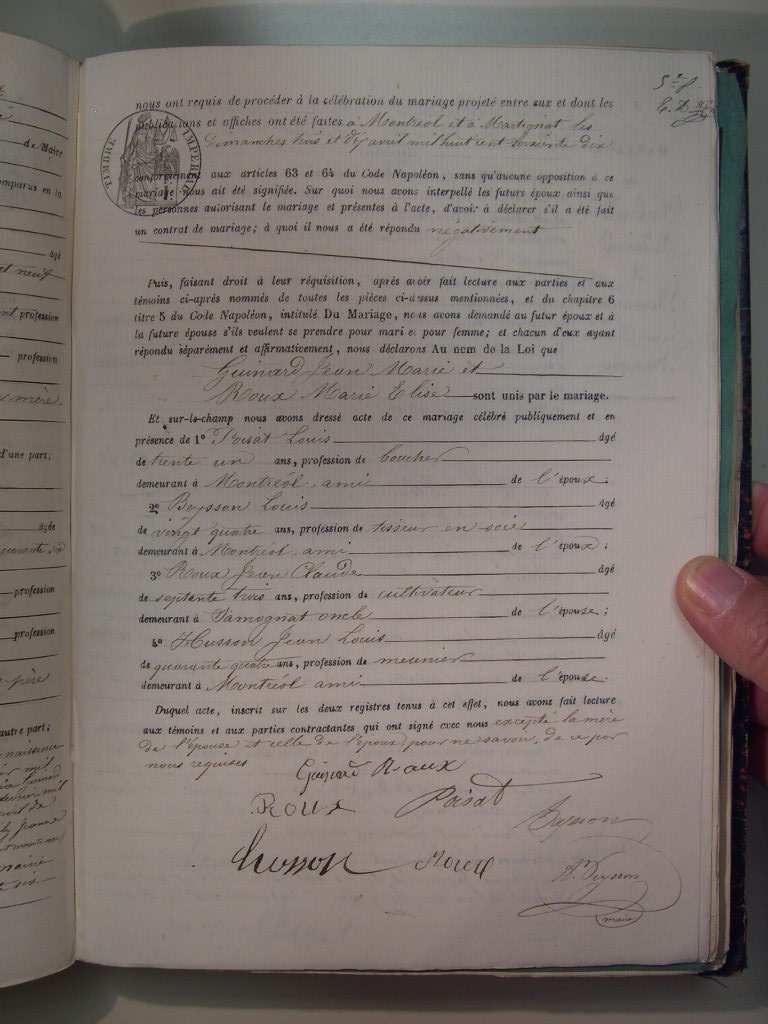 de Maire
comparus en la
agé
et neuf
profession
profession
mère
d'une part;
agée
quarante six
profession
profession
père
autre part;
nous ont requis de procéder à la célébration du mariage projeté entre eux et dont les
publications et affiches ont été faites à Montréol et à Martignat les
Dimanches trois et dix avril mil huit cent soixante dix
TIMBRE IMPERIAL
conformément aux articles 63 et 64 du Code Napoléon, sans qu'aucune opposition à ce
mariage nous ait été signifiée. Sur quoi nous avons interpellé les futurs époux ainsi que
les personnes autorisant le mariage et présentes à l'acte, d'avoir à déclarer s'il a été fait
un contrat de mariage; à quoi il nous a été répondu négativement
Puis, faisant droit à leur réquisition, après avoir fait lecture aux parties et aux
témoins ci-après nommés de toutes les pièces ci-dessus mentionnées, et du chapitre 6
titre 5 du Code Napoléon, intitulé Du Mariage, nous avons demandé au futur époux et à
la future épouse s'ils veulent se prendre pour mari et pour femme; et chacun d'eux ayant
répondu séparément et affirmativement, nous déclarons Au nom de la Loi que
Guinard Jean Marie et
Roux Marie Elise sont unis par le mariage.
Et sur-le-champ nous avons dressé acte de ce mariage célébré publiquement et en
présence de 1º Poisat Louis âgé
de trente un ans, profession de boucher
demeurant à Montréol ami de l'époux;
2º Beysson Louis âgé
de vingt quatre ans, profession de tisseur en soie
demeurant à Montréol ami de l'époux;
3º Roux Jean Claude âgé
de septante trois ans, profession de cultivateur
demeurant à Samognat oncle de l'épouse;
4º Husson Jean Louis âgé
de quarante quatre ans, profession de meunier
demeurant à Montréol ami de l'épouse.
Duquel acte, inscrit sur les deux registres tenus à cet effet, nous avons fait lecture
aux témoins et aux parties contractantes qui ont signé avec nous excepté la mère
de l'épouse et celle de l'époux pour ne savoir, de ce par
nous requises
Guinard Roux
Roux Poisat Beysson
husson Roux
maire